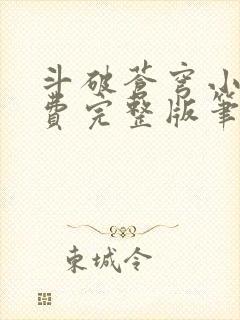 斗破蒼穹小
費完整版筆
東城令